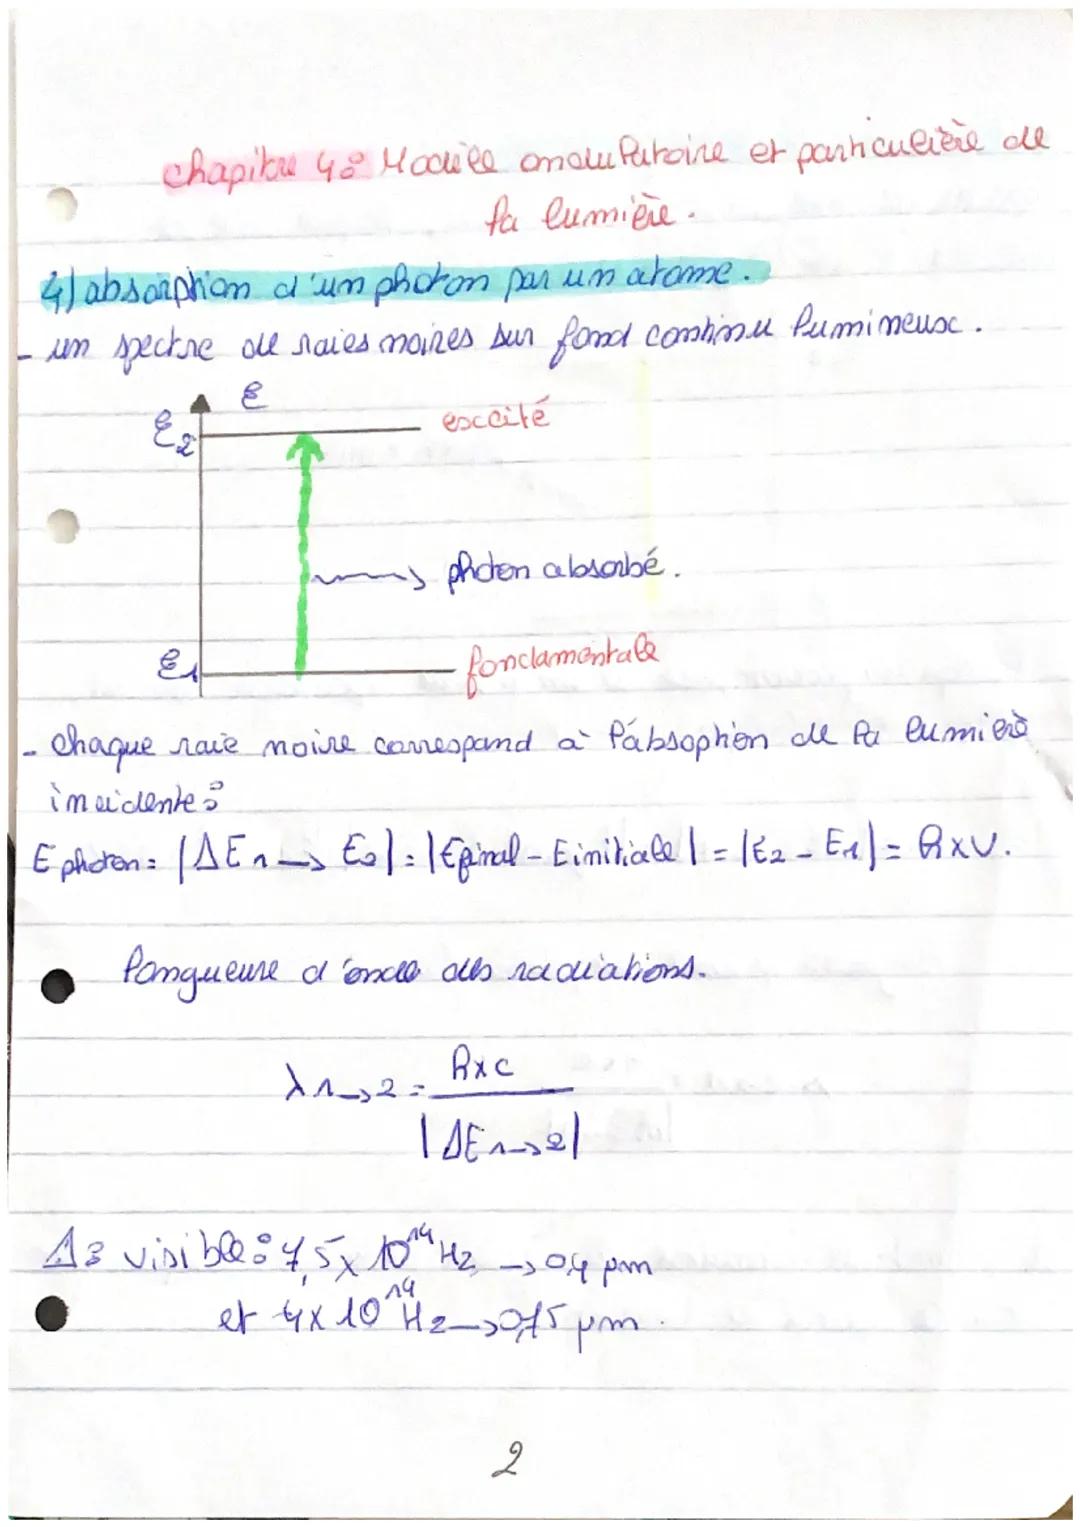 chapitre 4: Modèle ondulatoire et particulière de
la lumière.
4) absorption d'un photon par un atome.
- un spectre de raies noires sur fond continu lumineux.
E
E2
excité
photon absorbé.
E1
fondamentale
- chaque raie noire correspond à l'absophion de la lumière
incidente:
E photon = |ΔE 1 → E2| = |Efinal - Einitiale| = |E2 - E1| = h x ν.
longueure d'onde des radiations.
λ 1→2 = h x c / |ΔE 1→2|
visible: 7,5 x 10^14 Hz → 0,4 μm
et 4 x 10^14 Hz → 0,75 μm.
2